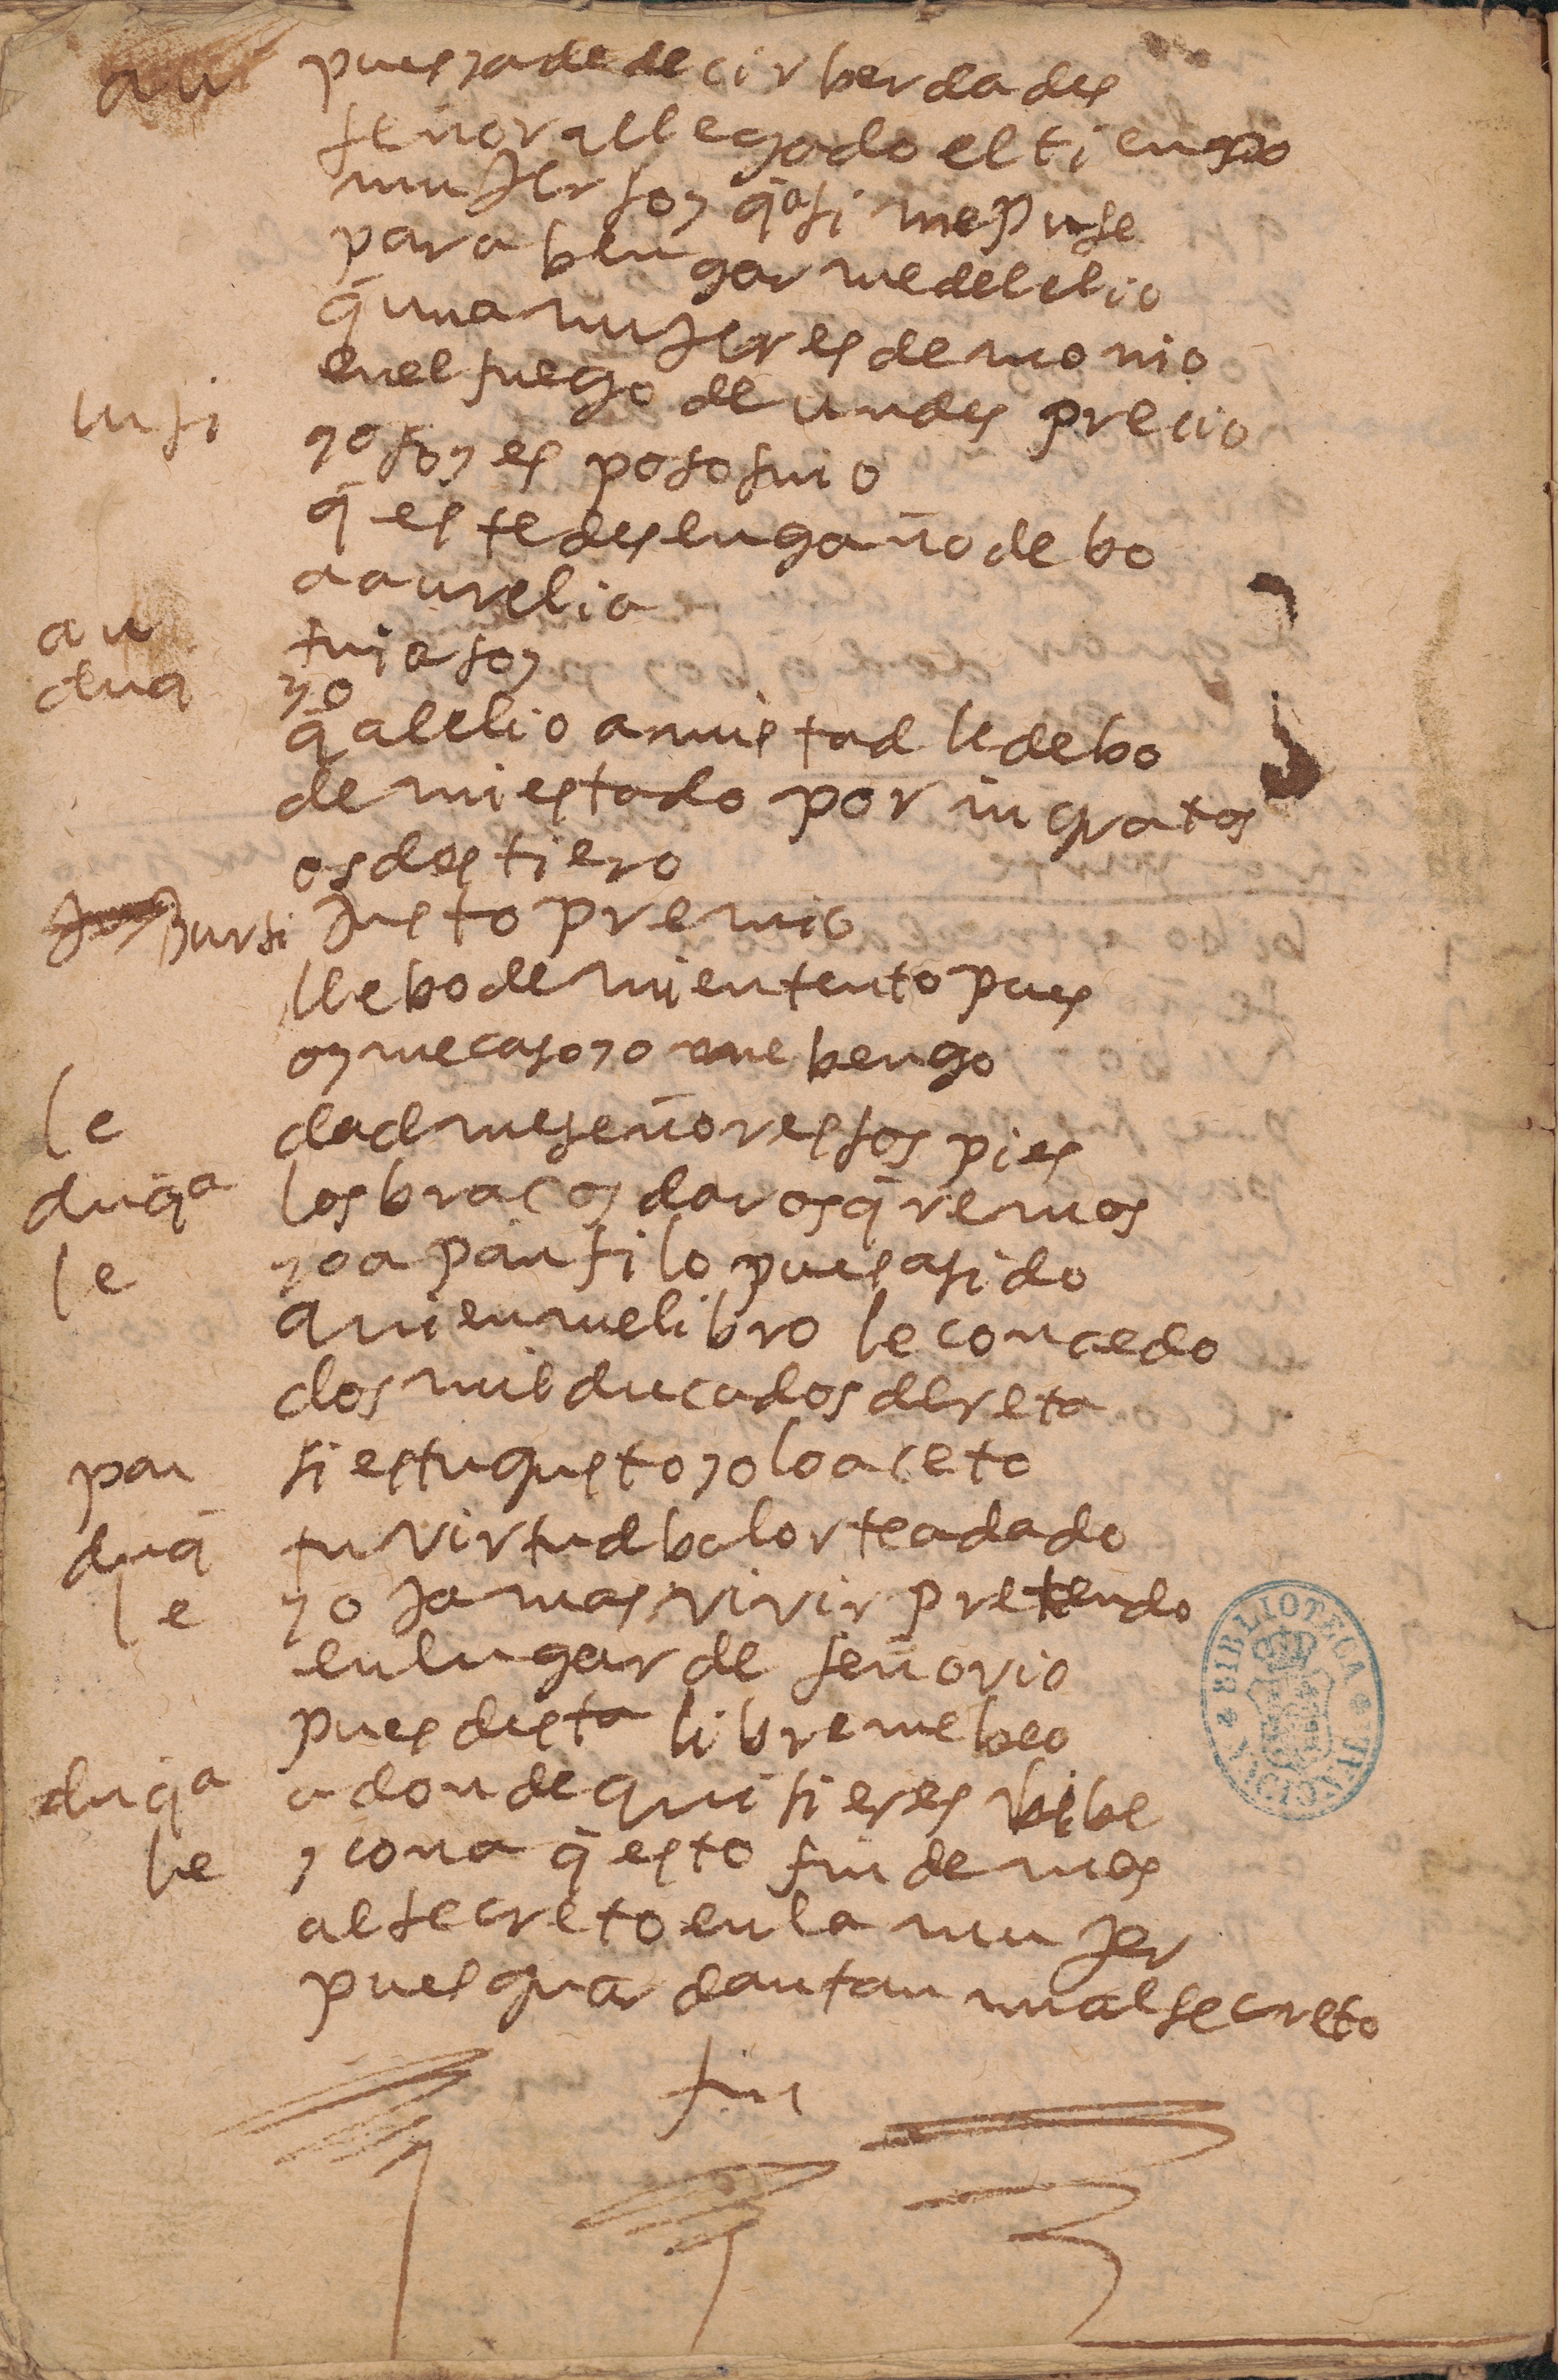 au pues ya de decir berdades
señor a llegado el tienpo
mujer soy q̄ asi me puse
para bengarme de lelio
q̄ una mujer es demonio
en el fuego de un desprecio
lusi yo soy esposo suio
q̄ este desengaño debo
a aurelia
au tuia soy
duq yo
q̄ a lelio amistad le debo
de mi estado por ingratos
os destiero
Jursi Justo premio
llebo de mi entento pues
oy me caso yo me bengo
le dadme señores sos pies
duq̄a los bracos daros q̄remos
le yo a panfilo pues a sido
quien me libro le concedo
dos mil ducados de reta
pan si es tu gusto yo lo aceto
duq̄ tu virtud balor te a dado
le yo Jamas vivir pretendo
en lugar de señorio
pues desta libre me beo
duq̄a a donde quisieres bibe
le y con a q̄esto fin demos
al secreto en la muJer
pues guardan tan mal secreto
fin
BIBLIOTECA NACIONAL